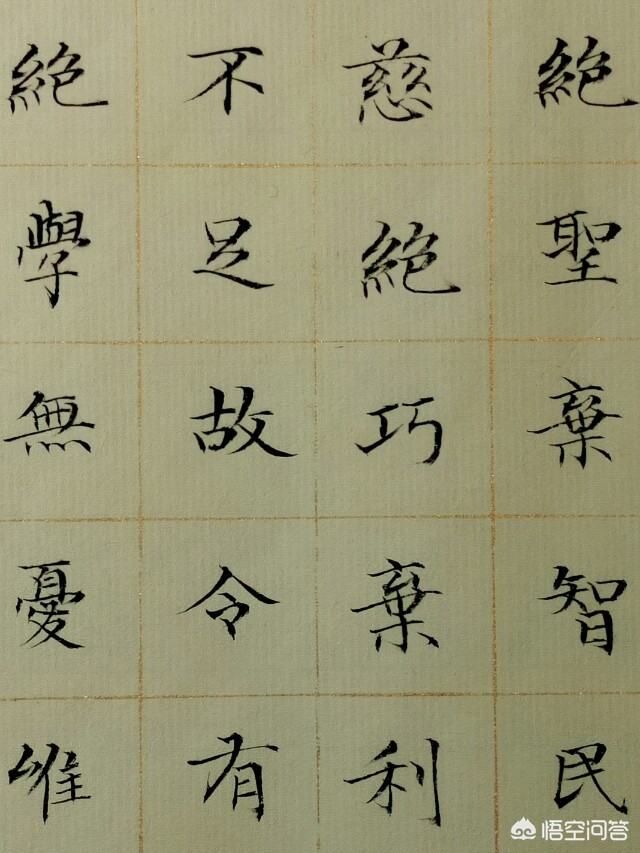 絶聖棄智民
慈絶巧棄利
不足故令有
絶學無憂唯
悟空问答